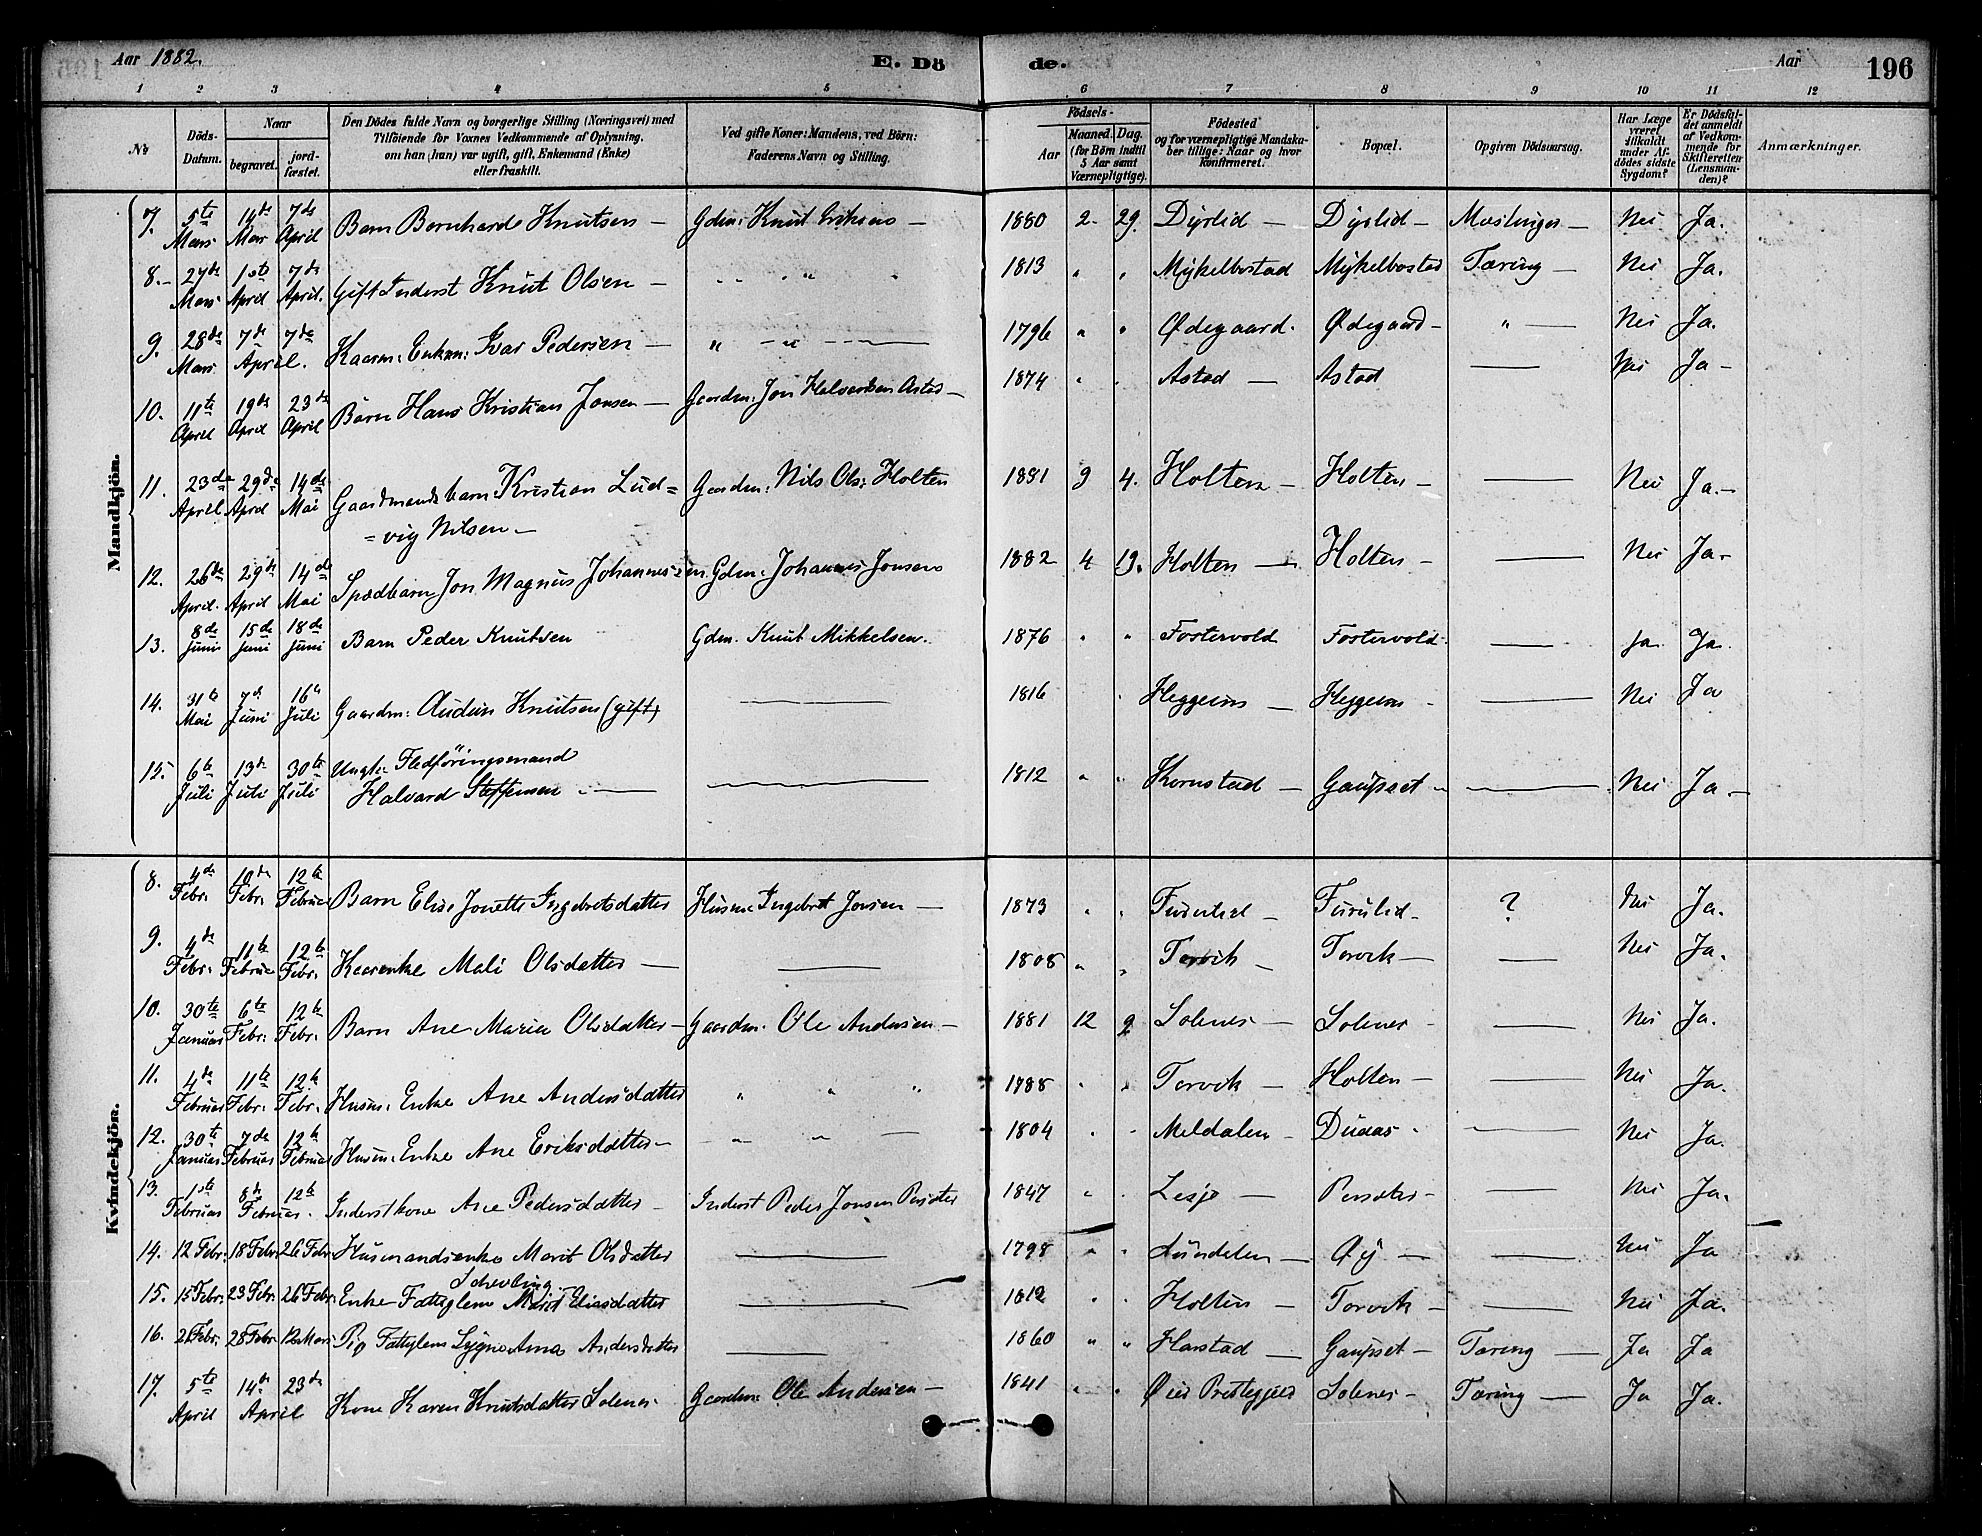 Aar 1882. E. Dö de. Aar 196
1 2 3 4 5 6 7 8 9 10 11 12
No Döds-Datum. Naar begravet. jordfæstet. Den Dödes fulde Navn og borgerlige Stilling (Næringsvei) med Tilföiende for Voxnes Vedkommende af Oplysning, om han (hun) var ugift, gift, Enkemand (Enke) eller fraskilt. Ved gifte Koner: Mandens, ved Börn: Faderens Navn og Stilling. Födsels- Aar Maaned. Dag. (for Börn indtil 5 Aar samt Værnepligtige). Födested og for værnepligtige Mandskaber tillige: Naar og hvor Konfirmeret. Bopæl. Opgiven Dödsaarsag. Har Læge været tilkaldt under Afdödes sidste Sygdom? Er Dödsfaldet anmeldt af Vedkommende for Skifteretten (Lensmanden)? Anmærkninger.
Mandkjön.
7. 5te Mars 14de Mars 7de April Barn Bernhard Knutsen — Gdm: Knut Eriksens — 1880 2 29. Dyrlid — Dyrlid — Meslinger — Nei Ja.
8. 27de Mars 1ste April 7de April. Gift Inderst Knut Olsen — " " 1813 " " Mykelbostad Mykelbostad Tæring — Nei Ja.
9. 28de Mars 7de 7de April. Kaarm: Enkem: Ivar Pedersen — " — " — 1796 " " Ødegaard. Ødegaard — " — Nei Ja.
10. 11te April 19de April 23de April Barn Hans Kristian Jonsen — Gaardm: Jon Halvorsen Astad — 1874 " " Astad — Astad — Nei Ja —
11. 23de April 29de April 14de Mai Gaardmandsbarn Kristian Lud=
=vig Nilsen — Gaardm: Nils Ols: Holten 1881 9 4. Holten — Holten — — Nei Ja. —
12. 26de April. 29de April 14de Mai Spædbarn Jon Magnus Johannessen. Gdm: Johannes Jonsens 1882 4 13. Holten — Holten — — Nei Ja —
13. 8de Juni 15de Juni 18de Juni Barn Peder Knutsen Gdm. Knut Mikkelsen. 1876 " " Fostervold Fostervold. — Ja. Ja.
14. 31te Mai 7de Juni 16de Juli Gaardm: Audun Knutsen (gift) — 1816 " Heggeim — Heggeim — — Nei Ja
15. 6te Juli 13de Juli 30te Juli Ungk: Fledføringsmand
Halvard Steffensen — — 1812 " " Kornstad — Gaupset — — Nei Ja. —
Kvindekjön.
8. 4de Febr. 10de Febr. 12te Februar Barn Elise Jonette Ingebretsdatter Husm: Ingebret Jonsen — 1873 " " Furulid — Furulid — ? Nei Ja.
9. 4de Febr. 11te Februar 12te Febr. Kaarenke Mali Olsdatter — — 1808 " " Torvik — Torvik — — Nei Ja.
10. 30te Januar 6te Febr: 12te Febr. Barn Ane Maria Olsdatter — Gaardm. Ole Andersen — 1881 12 9 Solenes — Solenes — — Nei Ja.
11. 4de Februar 11te Febr. 12te Febr. Husm: Enke Ane Andersdatter " " " 1788 " " Torvik — Holten — — Nei Ja.
12. 30te Januar 7de Februar 12te Februar Husm: Enke Ane Eriksdatter — — " " — 1804 " " Meldalen — — Nei Ja.
13. 1ste Februar 8de 12te Februar. Inderstkone Ane Pedersdatter — Inderst Peder Jonsen 1847 " " Lesje — — Nei Ja.
14. 12 Febr. 18 Febr. 26 Febr. Husmandsenke Marit Olsdatter — 1798 " " Sundalen — Øy — — Nei Ja
15. 15 Febr. 23 Febr. 26 Febr. Enke Fattiglem Marit Eliasdatter — " Holten — Torvik — — Nei Ja.
16. 21 Febr. 28 Febr. 12 Mars Pig Fattiglem Anna Andersdatter — 1860 " " Harstad — Gaupset — Tæring — Ja Ja
17. 5te April 14de 23de April Kone Karen Knutsdatter Solenes. Gaardm: Ole Andersen — 1841 " " Øies Prestegjeld Solenes — Tæring — Ja Ja.